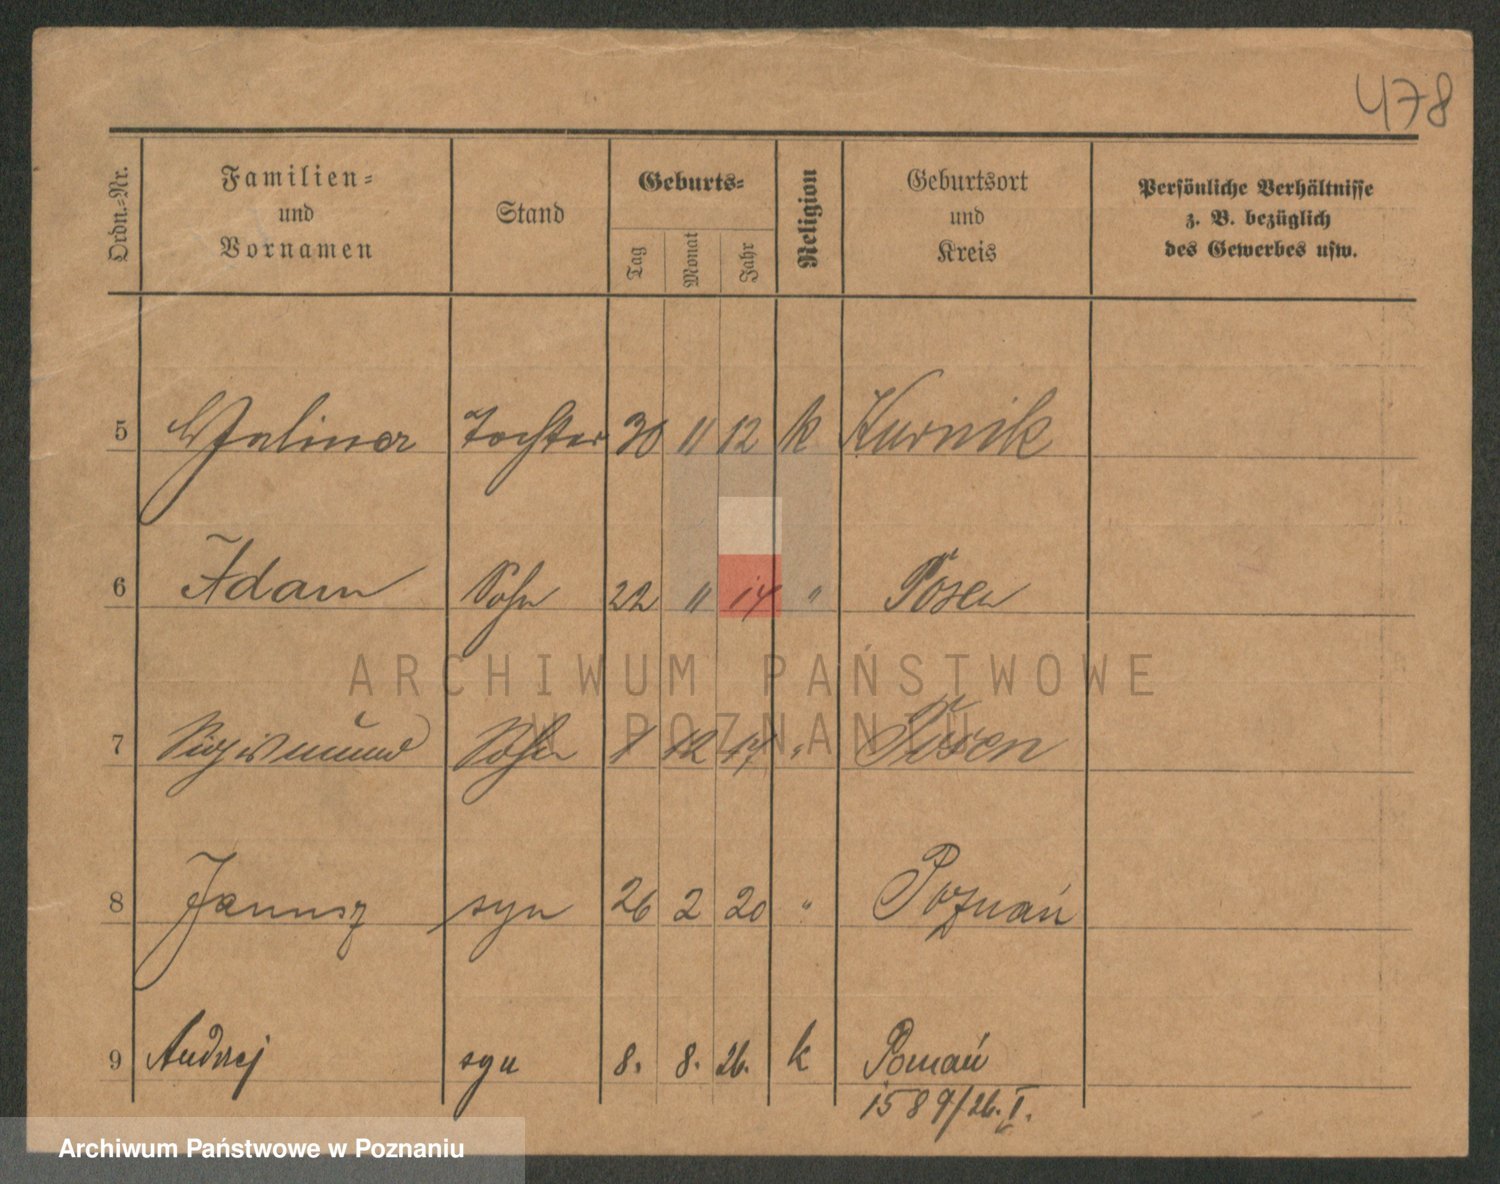 478
Ordn.-Nr.
Familien-
und
Vornamen
Stand
Geburts-
Tag
Monat
Jahr
Religion
Geburtsort
und
Kreis
Persönliche Verhältnisse
z. B. bezüglich
des Gewerbes usw.
5 Tochter 30 11 12 k Kurnik
6 Adam Sohn 22 " 14 " Posen
ARCHIWUM PAŃSTWOWE
W POZNANIU
7 Sigismund Sohn 1 12 17 " Posen
8 Janusz syn 26 2 20 " Poznań
9 Andrzej syn 8. 8. 26. k Poznań
1589/26. I.
Archiwum Państwowe w Poznaniu